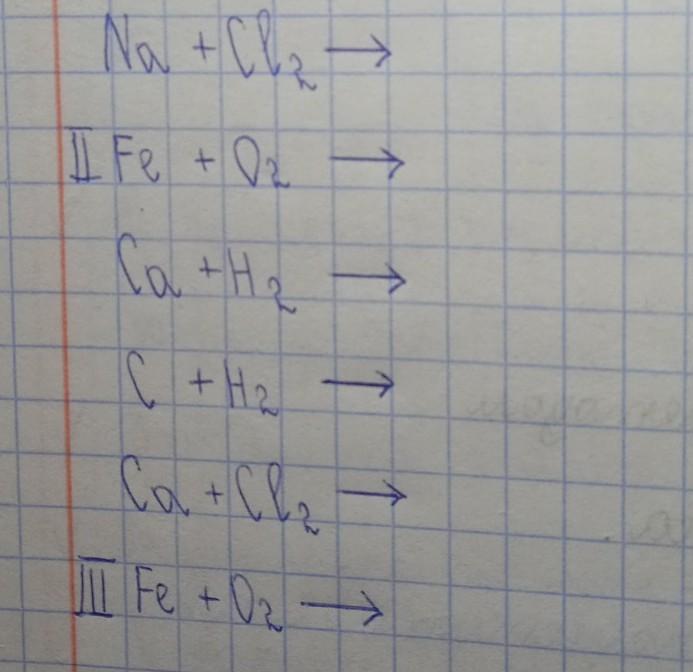 Na + Cl₂ →
II Fe + O₂ →
Ca + H₂ →
C + H₂ →
Ca + Cl₂ →
III Fe + O₂ →